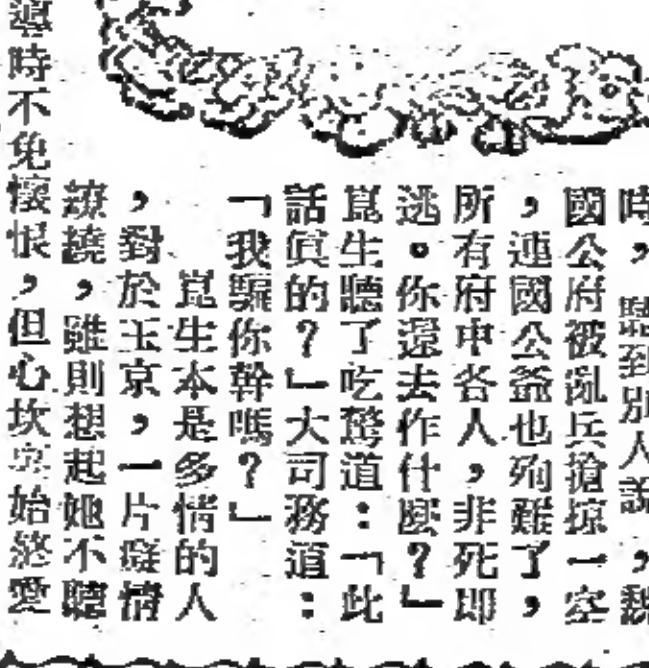 時，聽到別人說，魏
國公府被亂兵搶掠一空
，連國公爺也殉難了，
所有府中各人，非死即
逃。你還去作什麼？」
崑生聽了吃驚道：「此
話眞的？」大司務道：
「我騙你幹嗎？」
崑生本是多情的人
，對於玉京，一片癡情
繚繞，雖則想起她不聽
時不免懷恨，但心坎裏始終愛